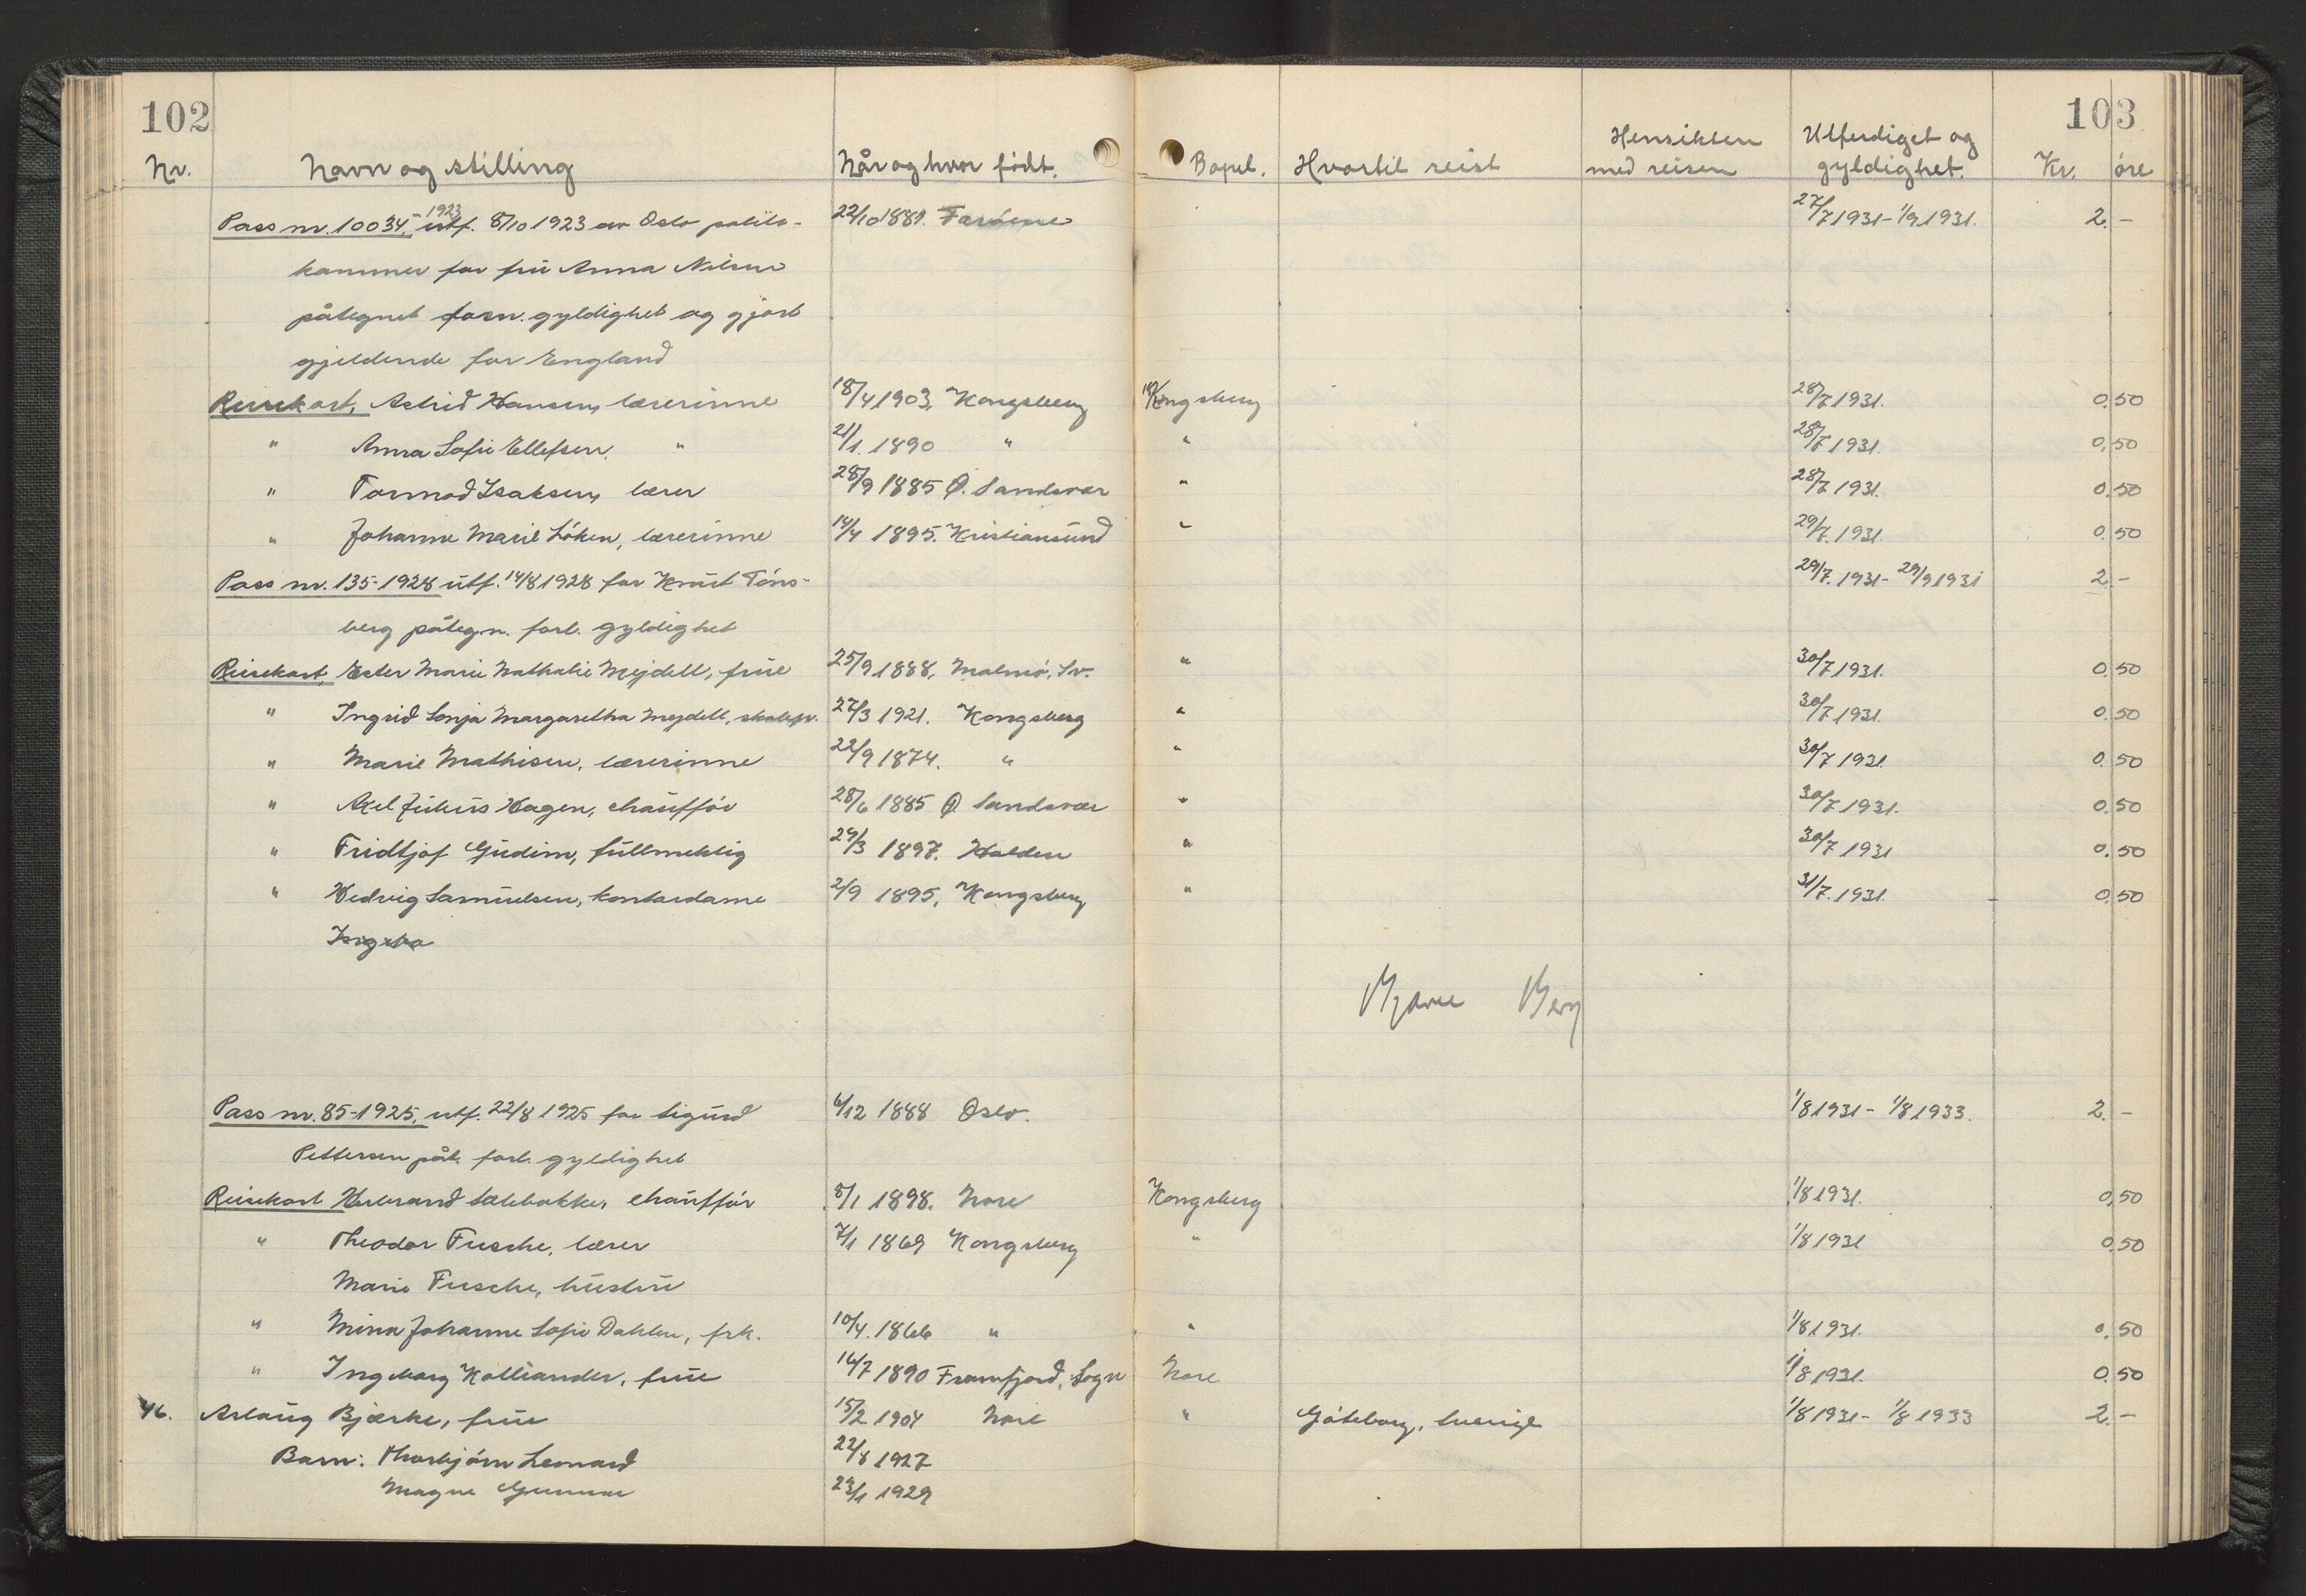 102
103
Nr. Navn og stilling Når og hvor født. Bopel. Hvortil reist Hensikten med reisen Utferdiget og gyldighet. Kr. øre
Pass nr. 10034,-1923 utf. 8/10 1923 av Oslo politi- 22/10 1881. Færøene 27/7 1931 - 1/9 1931. 2. -
kammer for fru Anna Nilsen
påtegnet forn. gyldighet og gjort
gjeldende for England
Reisekort, Astrid Hansen, lærerinne 18/4 1903, Kongsberg Kongsberg 28/7 1931. 0.50
" Anna Sofie Ellefsen, " 21/1. 1890 " " 28/7 1931. 0,50
" Tormod Isaksen, lærer 28/9 1885 Ø. Sandsvær " 28/7 1931. 0.50
" Johanne Marie Løken, lærerinne 14/4 1895. Kristiansund " 29/7. 1931. 0.50
Pass nr. 135-1928 utf. 14/8 1928 for Knut Tøns- 29/7. 1931 - 29/9 1931 2. -
berg påtegn. forl. gyldighet
Reisekort, Ester Marie Nathalie Mejdell, frue 25/9 1888, Malmø, Sv. " 30/7 1931. 0.50
" Ingrid Sonja Margaretha Mejdell, skolepr. 27/3 1921. Kongsberg " 30/7 1931. 0.50
" Marie Mathisen, lærerinne 22/9 1874. " " 30/7 1931. 0.50
" Axel Julius Hagen, chauffør 28/6 1885 Ø. Sandsvær " 30/7 1931. 0.50
" Fridtjof Gudim, fullmektig 29/3 1897. Halden " 30/7 1931 0.50
" Hedvig Samuelsen, kontordame 2/9 1895, Kongsberg " 31/7. 1931. 0.50
Bjarne Berg
Pass nr. 85-1925, utf. 22/8 1925 for Sigurd 6/12 1888 Oslo. 1/8 1931 - 1/8 1933. 2. -
Pettersen påt. forl. gyldighet
Reisekort Herbrand Sælebakke, chauffør 8/1 1898. Nore Kongsberg 1/8 1931. 0,50
" Theodor Fusche, lærer 7/1 1869 Kongsberg " 1/8 1931 0.50
Marie Fusche, hustru
" Mina Johanne Sofie Dahlen, frk. 10/4. 1866 " " 1/8 1931. 0.50
" Ingeborg Kolliander, frue 16/7 1890 Framfjord, Sogn Nore 1/8 1931. 0.50
46. Aslaug Bjerke, frue 15/2 1904 Nore " Gøteborg, Sverige 1/8 1931 - 1/8 1933 2. -
Barn: Thorbjørn Leonard 22/8 1927
Magne Gunnar 23/1 1929